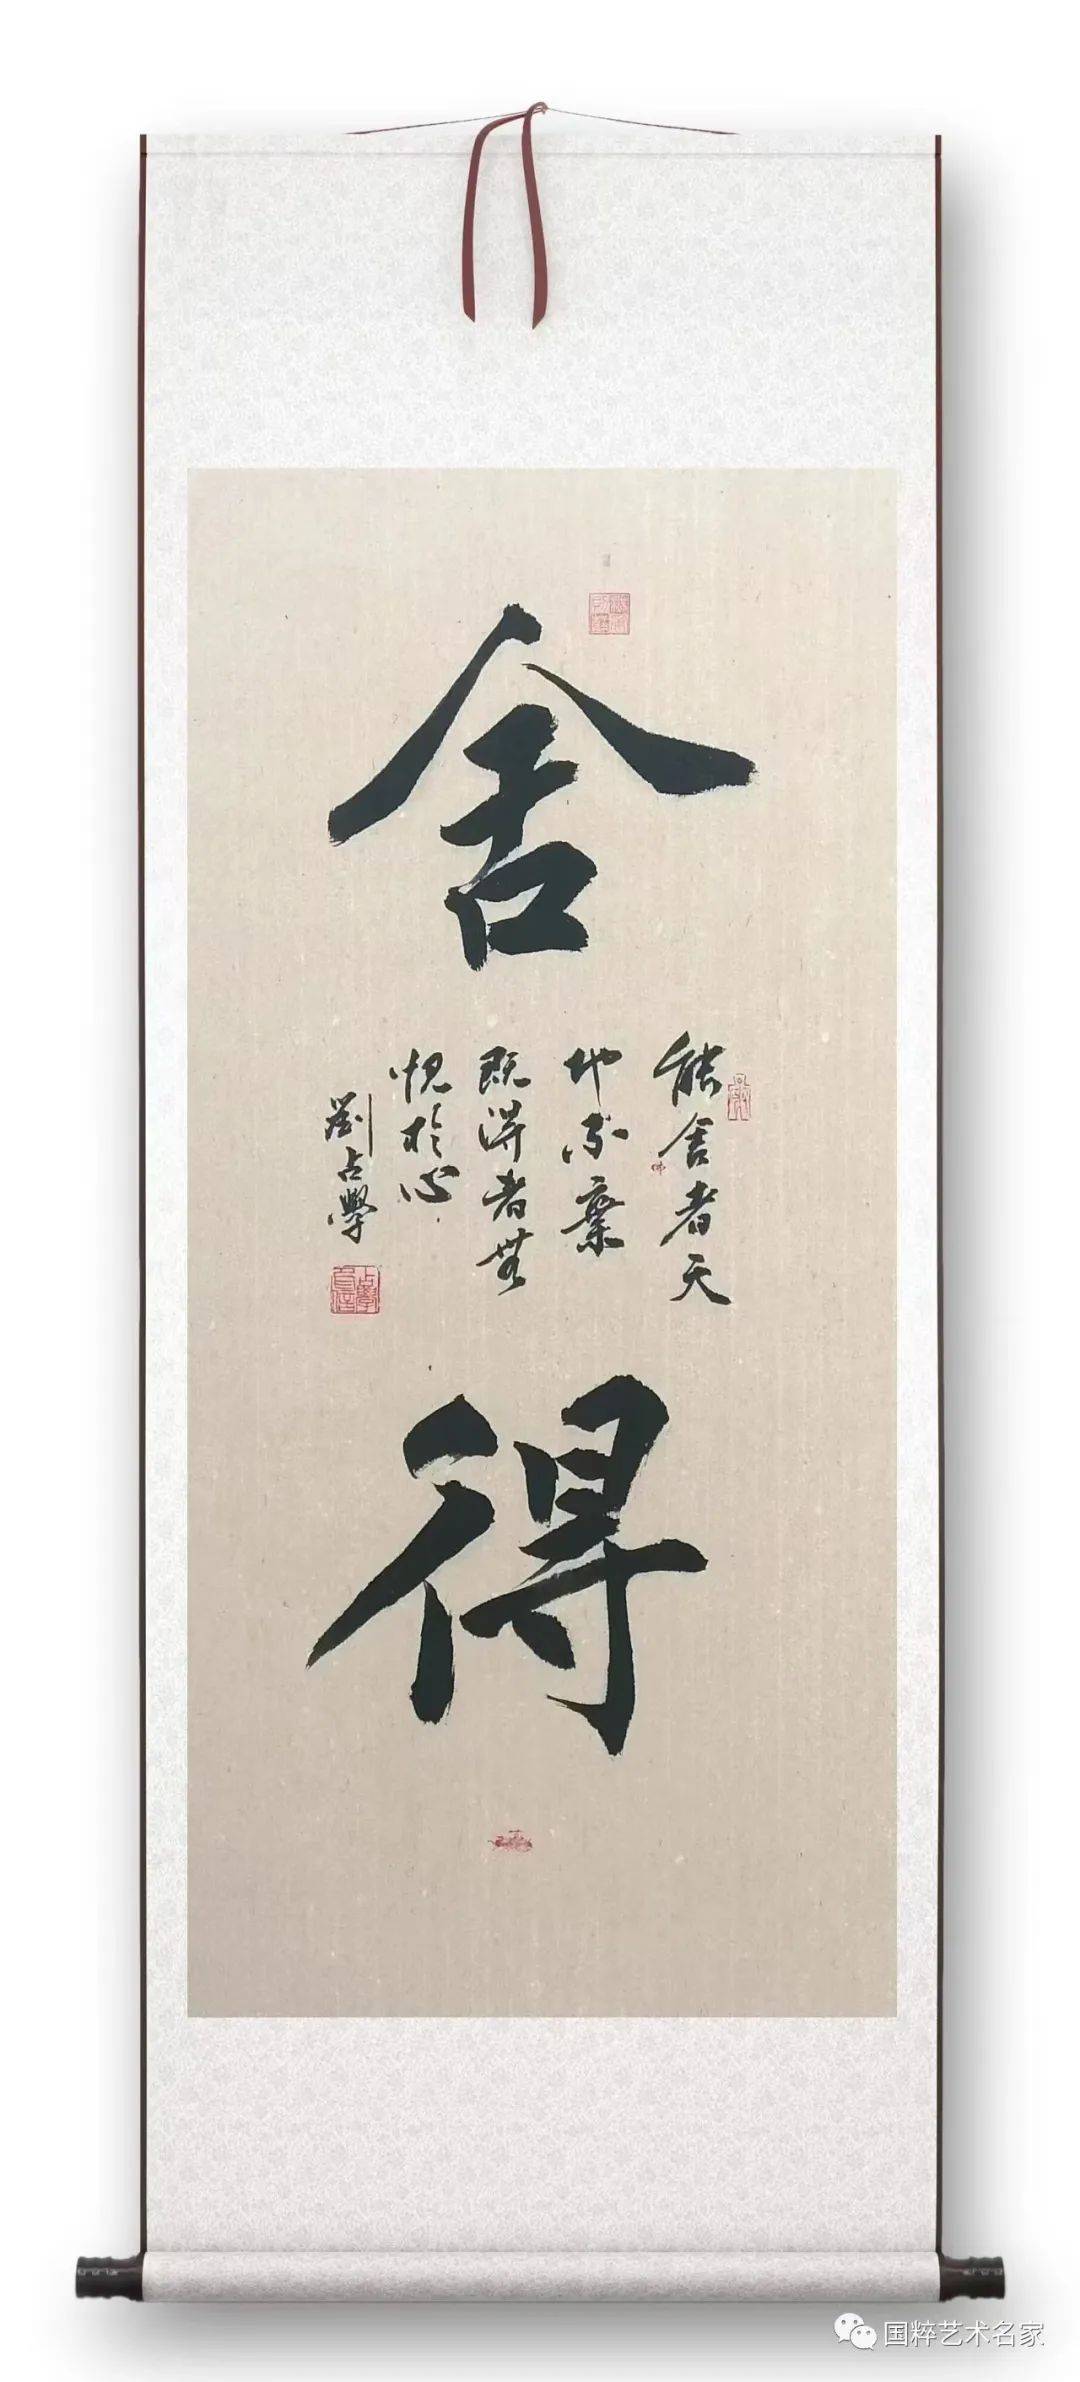 舍
得
能舍者天
地不棄
既得者無
愧於心
劉占學
占學
国粹艺术名家